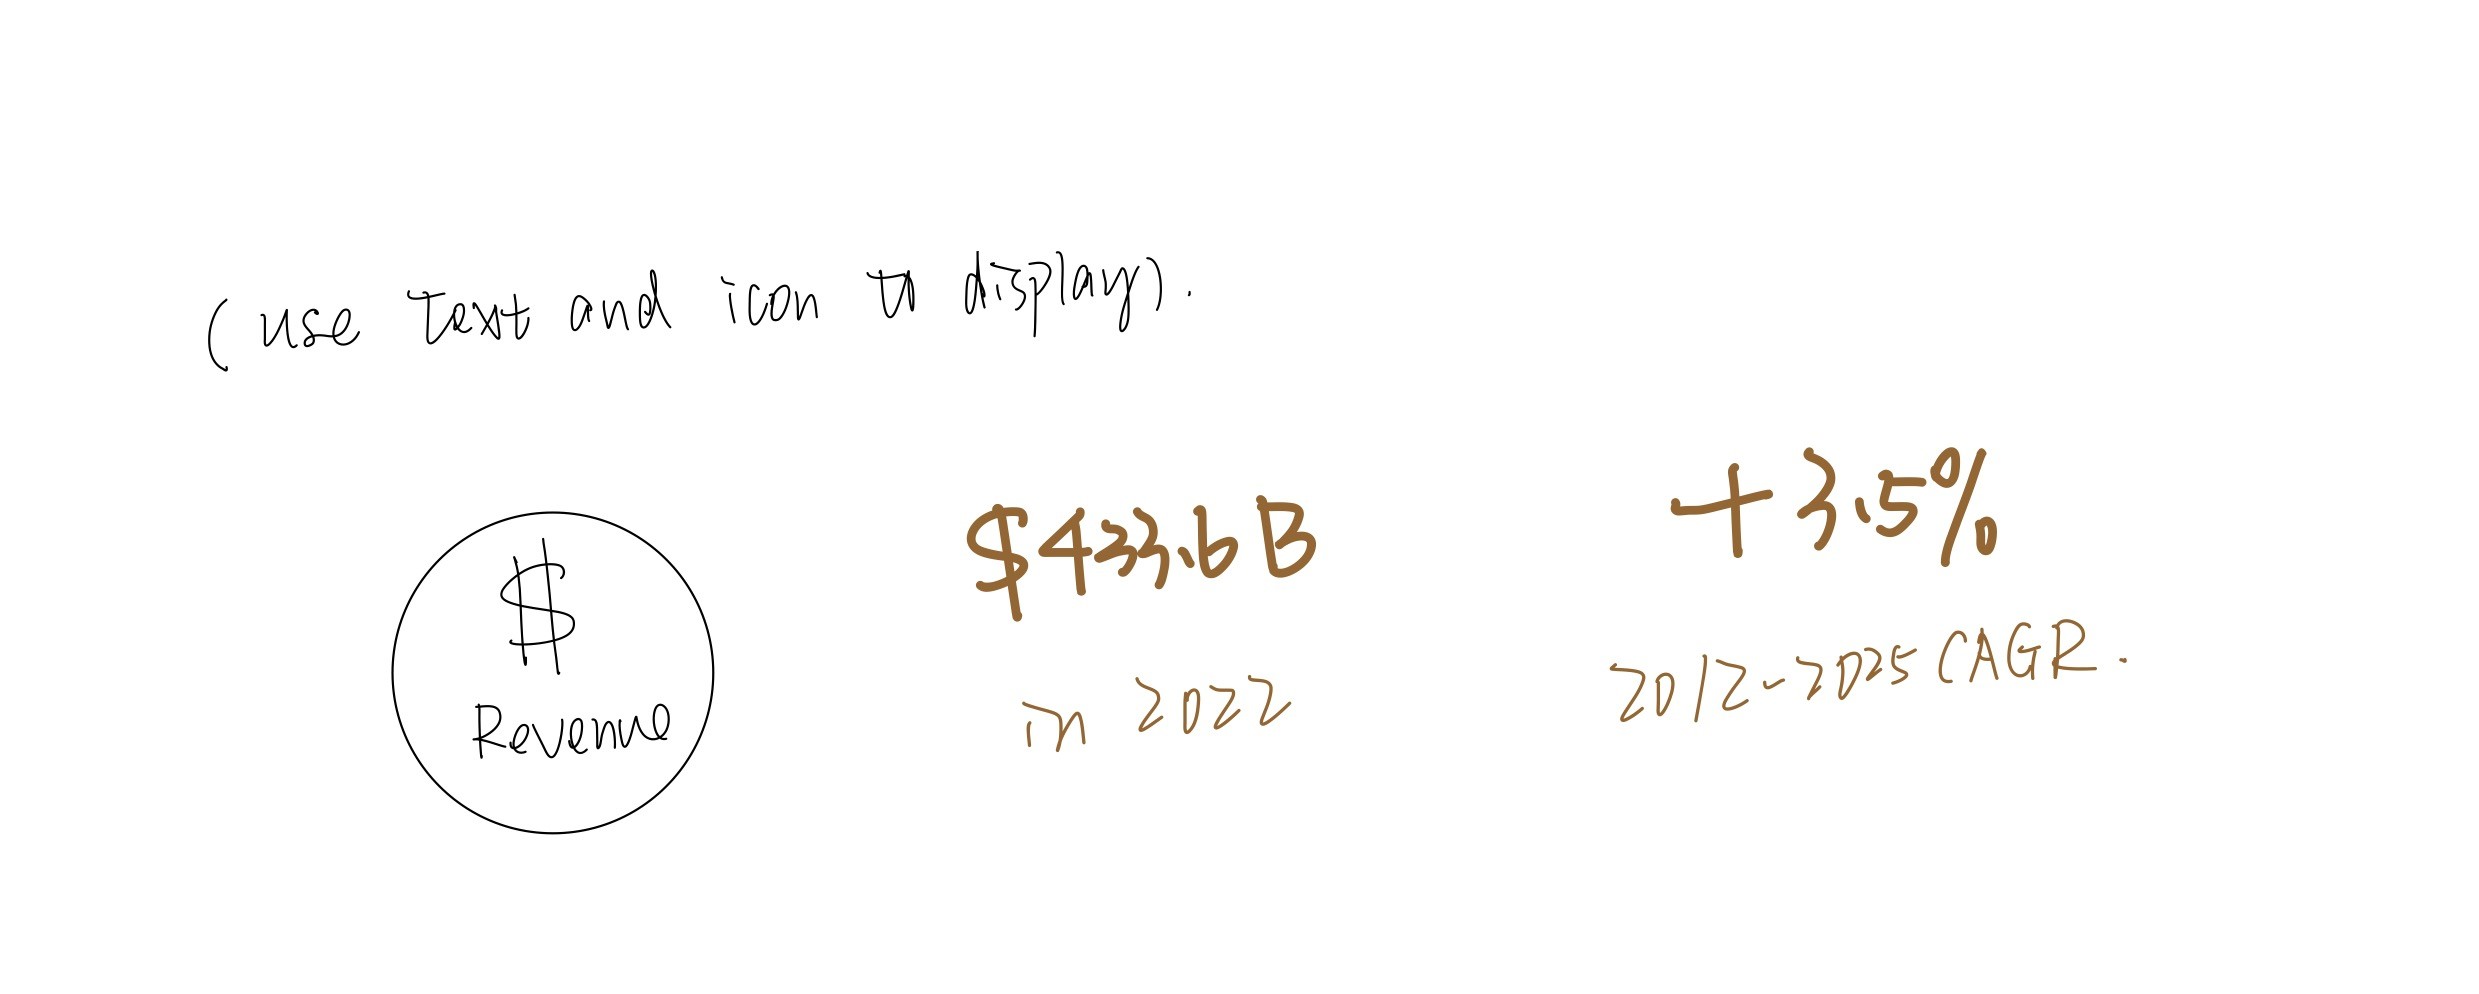 (use text and icon to display).
$
Revenue
$433.6B
in 2022
+3.5%
2012-2025 CAGR.